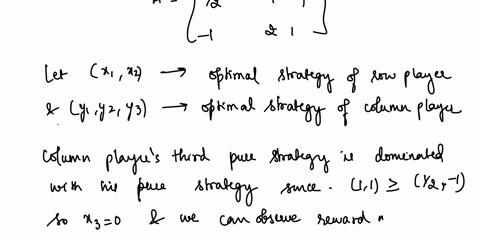 -1 2 1
Let (x1, x2) → optimal strategy of row player
& (y1, y2, y3) → optimal strategy of column player
Column player's third pure strategy is dominated
with his pure strategy since. (1,1) ≥ (1/2, -1)
so x3=0 & we can observe reward